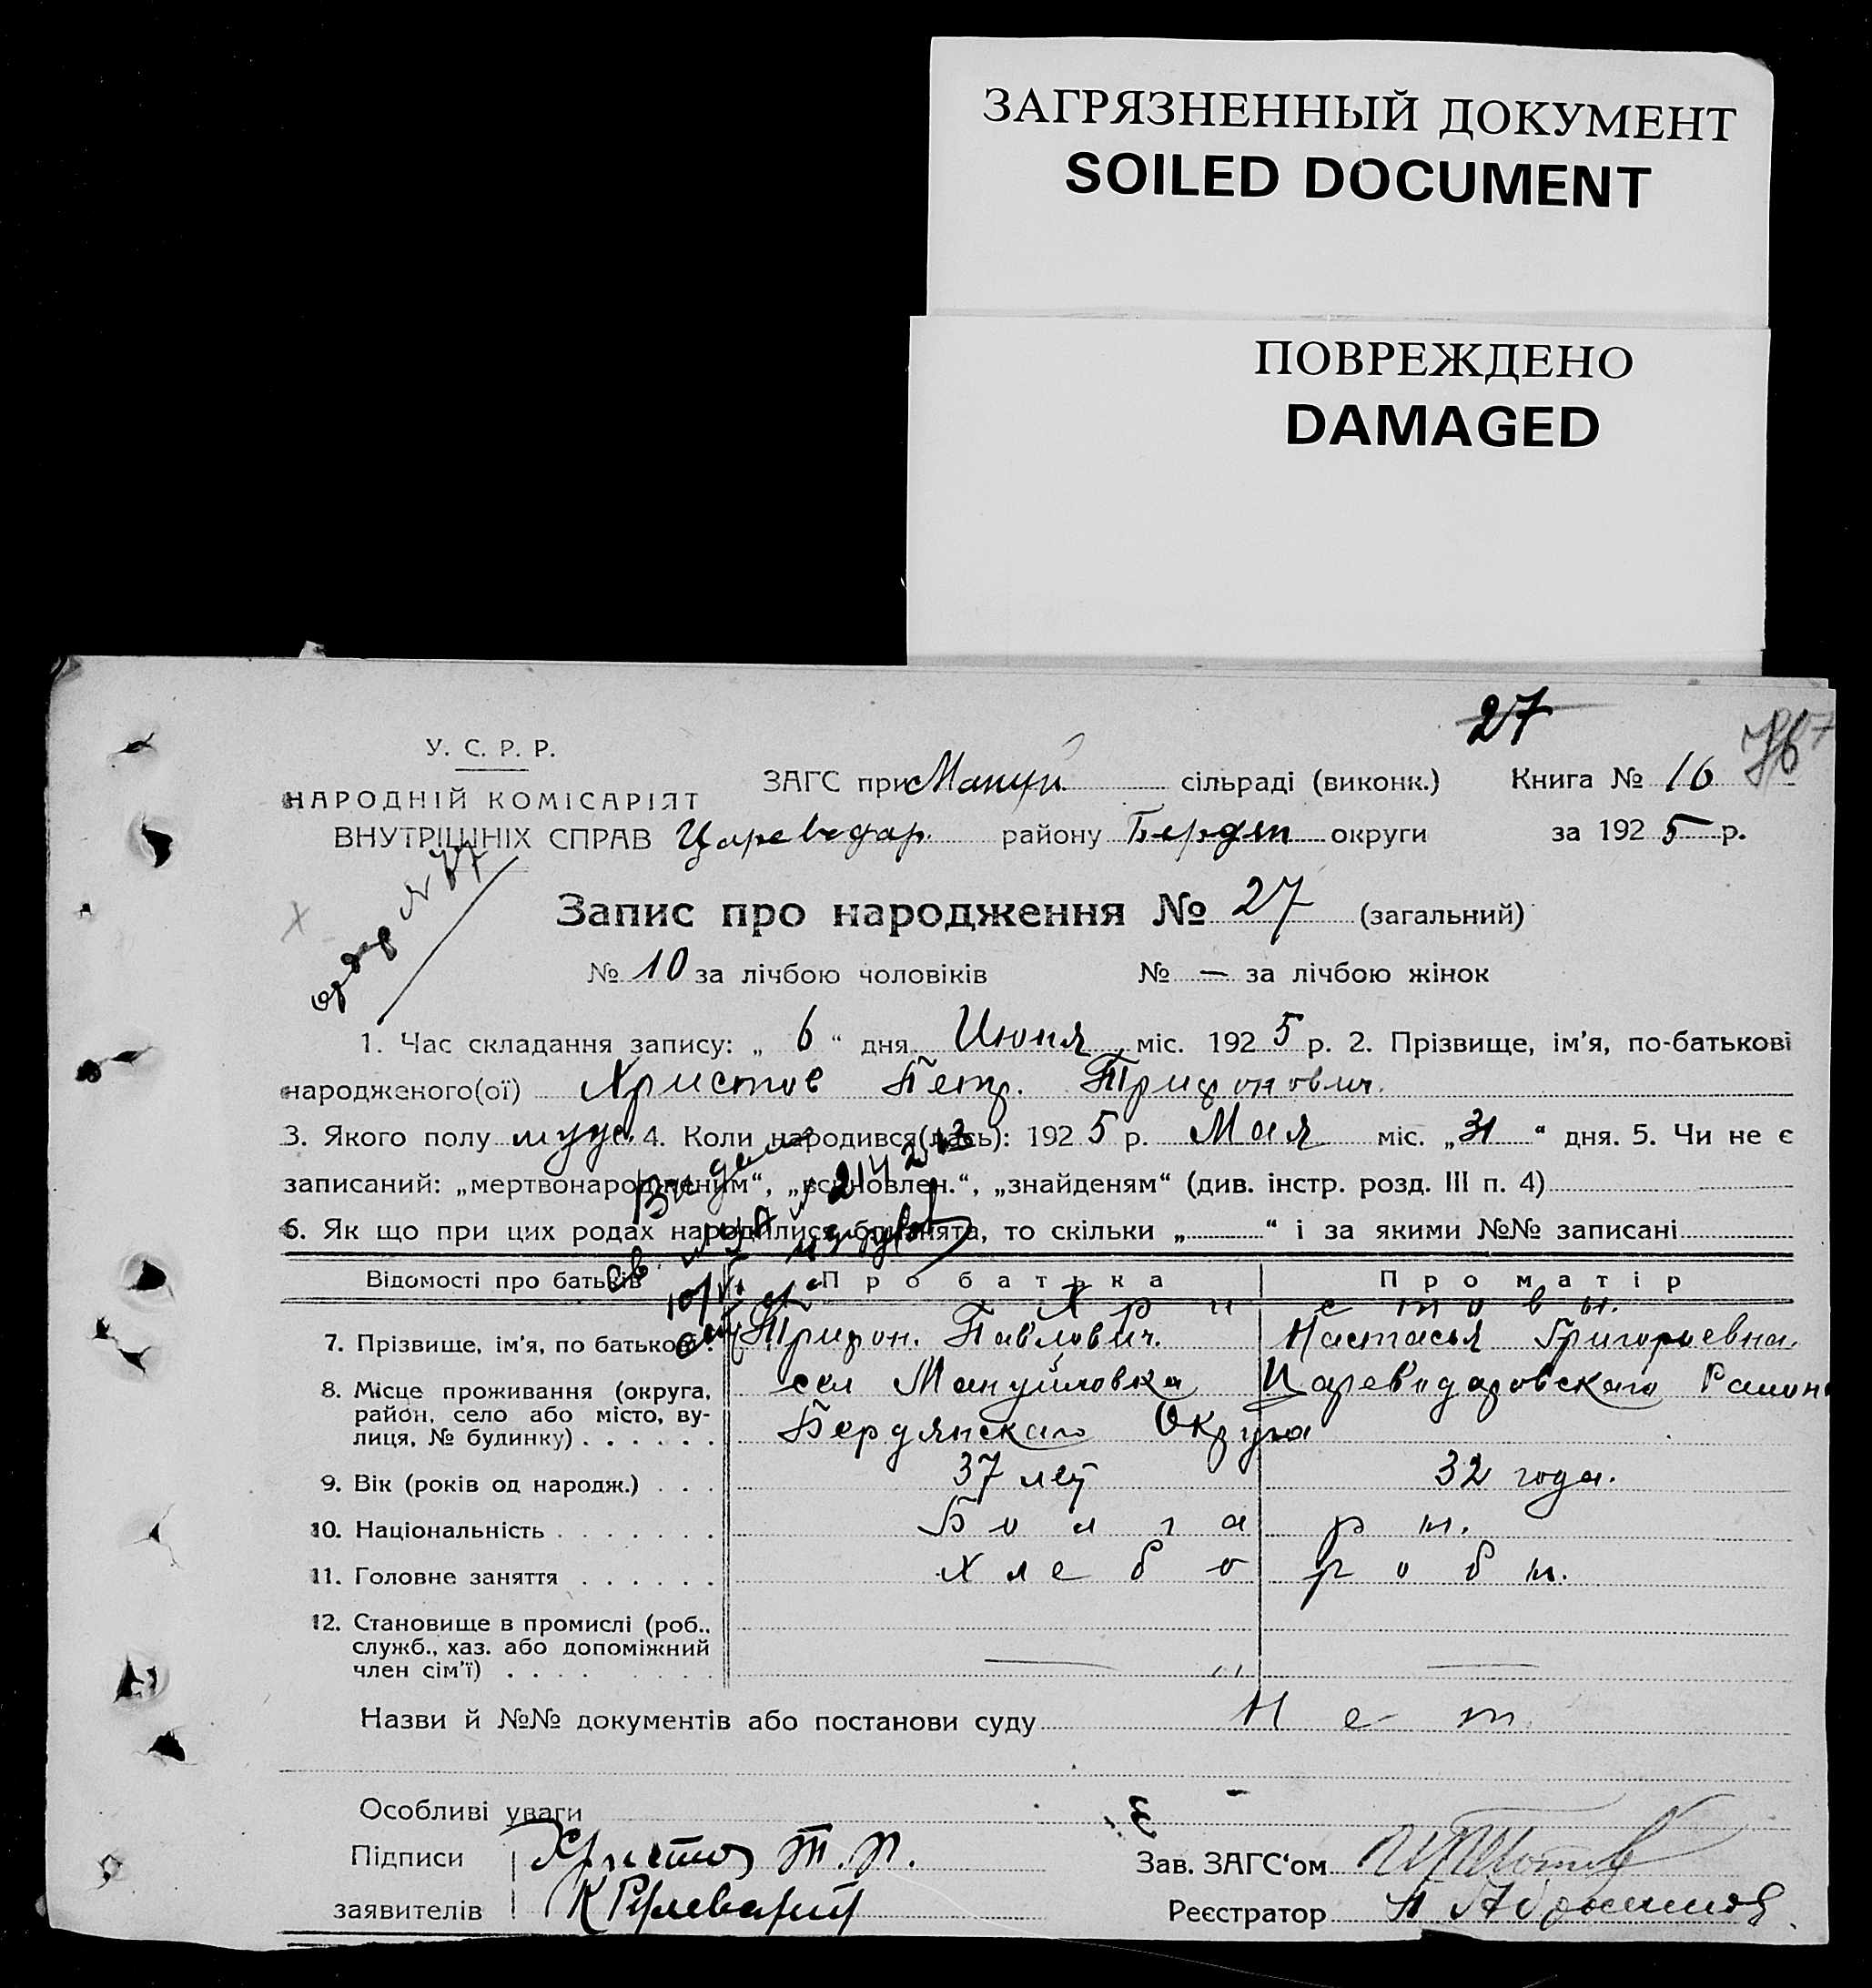 ЗАГРЯЗНЕННЫЙ ДОКУМЕНТ
SOILED DOCUMENT
ПОВРЕЖДЕНО
DAMAGED
27
У. С. Р. Р.
НАРОДНІЙ КОМІСАРІЯТ
ВНУТРІШНІХ СПРАВ
ЗАГС при Мануй сільраді (виконк.) Книга № 16
Цареводар. району Бердян округи за 1925 р.
Запис про народження № 27 (загальний)
№ 10 за лічбою чоловіків № — за лічбою жінок
1. Час складання запису: „ 6 “ дня Июня міс. 1925 р. 2. Прізвище, ім’я, по-батькові
народженого(ої) Христов Петр. Трифонович.
3. Якого полу муж. 4. Коли народився(лась): 1925 р. Мая міс. „31“ дня. 5. Чи не є
записаний: „мертвонародженим“, „встановлен.“, „знайденям“ (див. інстр. розд. III п. 4)
6. Як що при цих родах народилися близнята, то скільки „ “ і за якими №№ записані
Відомості про батьків Про батька Про матір
Христовы.
7. Прізвище, ім’я, по батькові. Трифон. Павлович. Настасья Григорьевна.
8. Місце проживання (округа, район, село або місто, вулиця, № будинку) сел Мануйловка Цареводаровскаго Района
Бердянскаго Округа
9. Вік (років од народж.) 37 лет 32 года.
10. Національність Болгары.
11. Головне заняття Хлеборобы.
12. Становище в промислі (роб., служб., хаз. або допоміжний член сім’ї) — —
Назви й №№ документів або постанови суду Нет
Особливі уваги
Підписи Христов Т. П.
Зав. ЗАГС‘ом
заявителів
Реєстратор